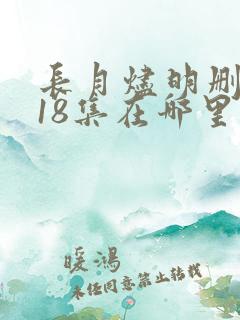 長月燼明刪
18集在哪里
暖鴻
未任同意禁止转载